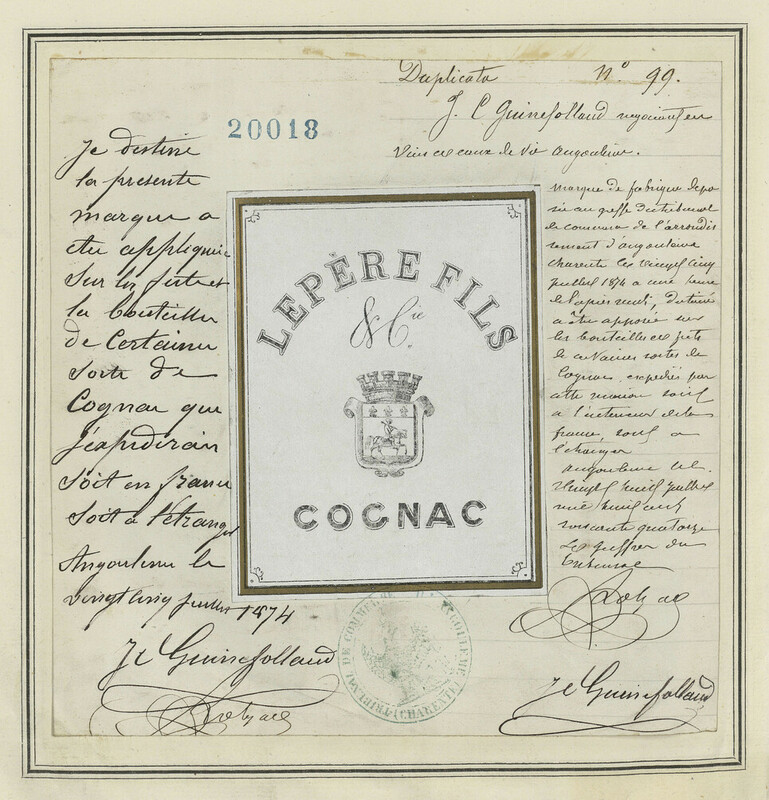 Duplicata n° 99.
J. C Guinefolland negociant en
vins et eaux de vie angouleme.
20018
Je destine
la presente
marque a
etre appliquée
Sur les futs et
la bouteilles
de Certaines
Sorte de
Cognac que
J'expedierai
Soit en france
Soit à l'étranger
Angouleme le
vingt cinq juillet 1874
Jc Guinefolland
LEPÈRE FILS
& Cie
COGNAC
marque de fabrique depo
sée au greffe du tribunal
de commerce de l'arrondis
sement d'angouleme
charente le vingt cinq
juillet 1874 a une heure
de l'apres midi, destinée
a être apposée sur
les bouteilles et futs
de certaines sortes de
Cognac expediés par
cette maison soit
a l'interieur de la
france, soit a
l'étranger
angouleme le
vingt huit juillet
mil huit cent
soixante quatorze
Le greffier du
tribunal
Jc Guinefolland
TRIBUNAL DE COMMERCE D'ANGOULEME (CHARENTE)